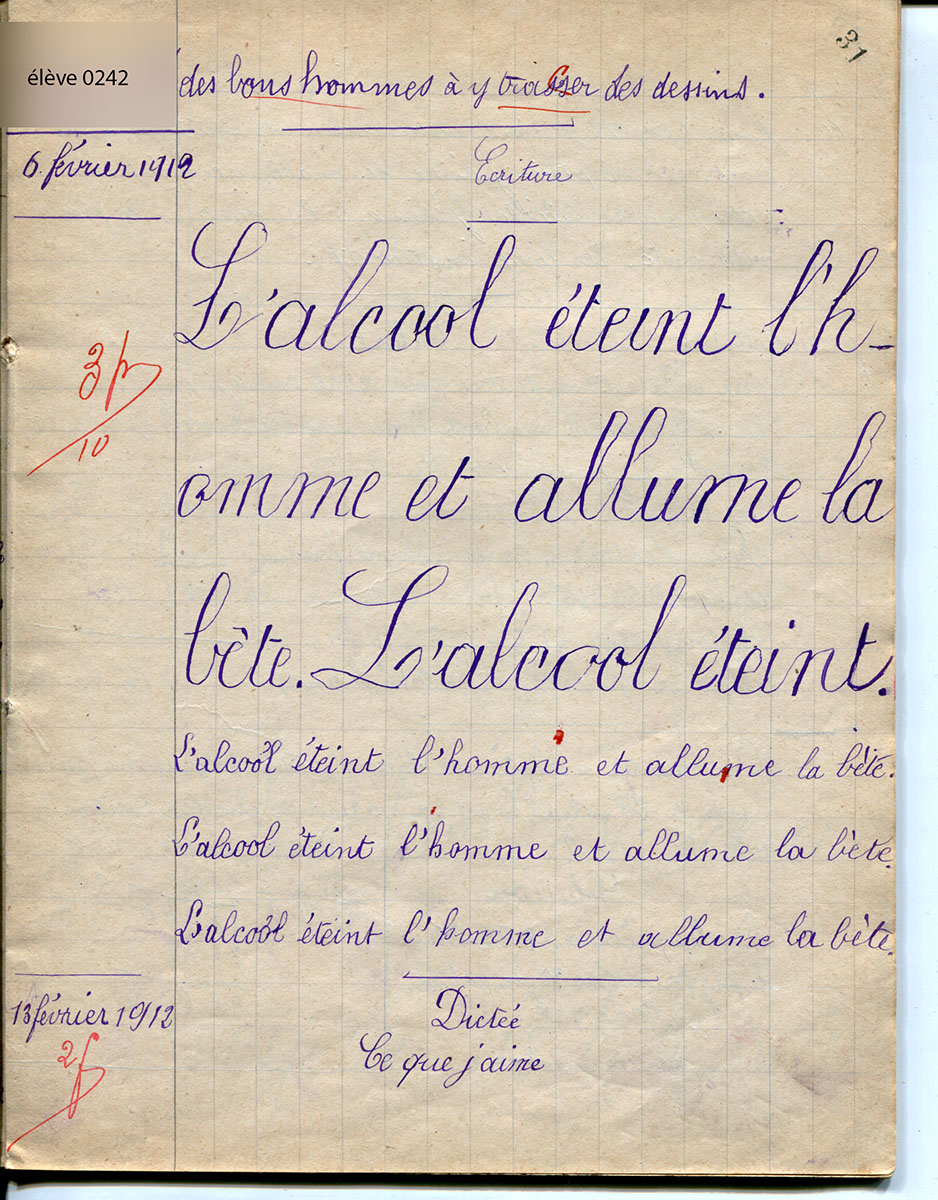 31
élève 0242
des bons hommes à y tracser des dessins.
6 février 1912
Ecriture
L'alcool éteint l'h-
3 /
10
omme et allume la
bête. L'alcool éteint.
L'alcool éteint l'homme et allume la bête.
L'alcool éteint l'homme et allume la bête.
L'alcool éteint l'homme et allume la bête.
13 février 1912
Dictée
2 f
Ce que j'aime